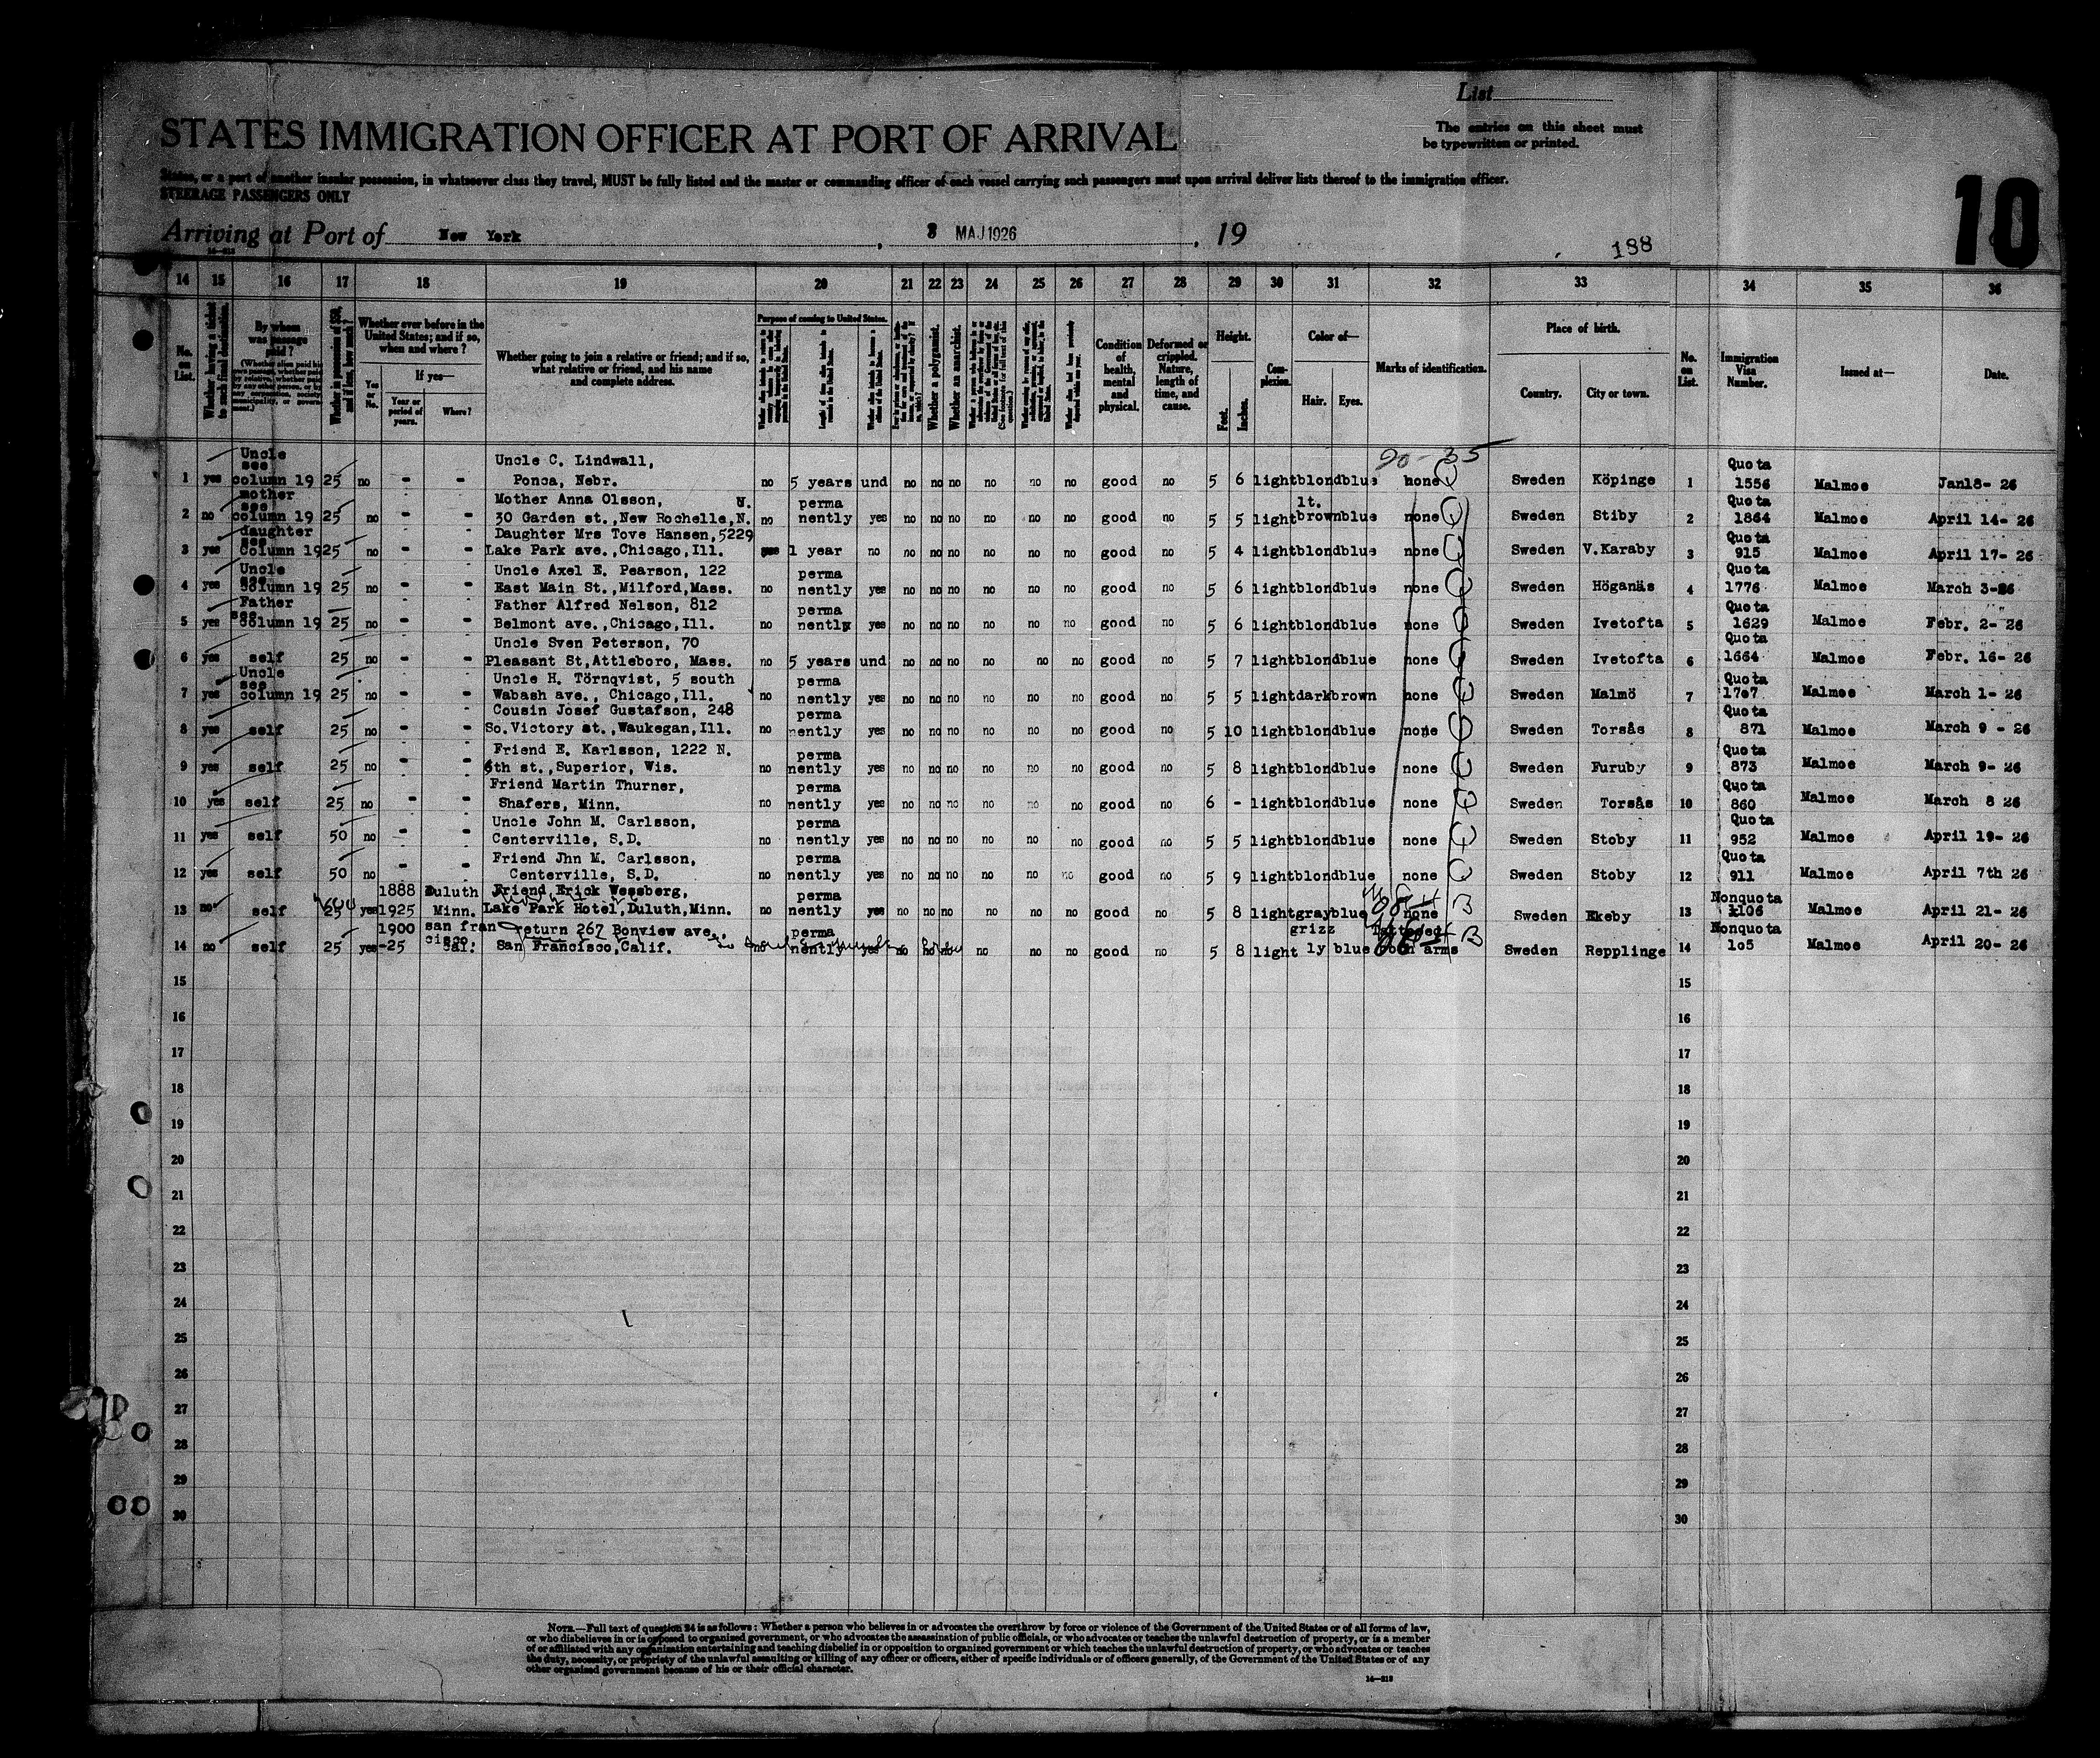 List
STATES IMMIGRATION OFFICER AT PORT OF ARRIVAL
The entries on this sheet must
be typewritten or printed.
States, or a port of another insular possession, in whatsoever class they travel, MUST be fully listed and the master or commanding officer of each vessel carrying such passengers must upon arrival deliver lists thereof to the immigration officer.
STEERAGE PASSENGERS ONLY
10
Arriving at Port of New York, 8 MAJ 1926, 19
188
14 15 16 17 18 19 20 21 22 23 24 25 26 27 28 29 30 31 32 33 34 35 36
No. on List.
Whether having a ticket to such final destination.
By whom was passage paid?
Whether in possession of $50, and if less, how much?
Whether ever before in the United States; and if so, when and where?
Yes or No.
If yes—
Year or period of years.
Where?
Whether going to join a relative or friend; and if so, what relative or friend, and his name and complete address.
Purpose of coming to United States.
Whether a polygamist.
Whether an anarchist.
Condition of health, mental and physical.
Deformed or crippled. Nature, length of time, and cause.
Height.
Feet. Inches.
Complexion.
Color of—
Hair. Eyes.
Marks of identification.
Place of birth.
Country. City or town.
No. on List.
Immigration Visa Number.
Issued at—
Date.
20-35
1 yes Uncle see column 19 25 no - - Uncle C. Lindwall, Ponca, Nebr. no 5 years und no no no no no no good no 5 6 light blond blue none Sweden Köpinge 1 Quota 1556 Malmoe Jan18- 26
2 no mother see column 19 25 no - - Mother Anna Olsson, 30 Garden st.,New Rochelle,N. Y. no perma nently yes no no no no no no good no 5 5 light lt. brown blue none Sweden Stiby 2 Quota 1864 Malmoe April 14- 26
3 yes daughter see column 19 25 no - - Daughter Mrs Tove Hansen,5229 Lake Park ave.,Chicago,Ill. yes 1 year no no no no no no no good no 5 4 light blond blue none Sweden V.Karaby 3 Quota 915 Malmoe April 17- 26
4 yes Uncle see column 19 25 no - - Uncle Axel E. Pearson, 122 East Main St.,Milford,Mass. no perma nently yes no no no no no no good no 5 6 light blond blue none Sweden Höganäs 4 Quota 1776 Malmoe March 3-26
5 yes Father see column 19 25 no - - Father Alfred Nelson, 812 Belmont ave.,Chicago,Ill. no perma nently yes no no no no no no good no 5 6 light blond blue none Sweden Ivetofta 5 Quota 1629 Malmoe Febr. 2- 26
6 yes self 25 no - - Uncle Sven Peterson, 70 Pleasant St,Attleboro, Mass. no 5 years und no no no no no no good no 5 7 light blond blue none Sweden Ivetofta 6 Quota 1664 Malmoe Febr. 16- 26
7 yes Uncle see column 19 25 no - - Uncle H. Törnqvist, 5 south Wabash ave., Chicago,Ill. no perma nently yes no no no no no no good no 5 5 light dark brown none Sweden Malmö 7 Quota 1707 Malmoe March 1- 26
8 yes self 25 no - - Cousin Josef Gustafson, 248 So.Victory st.,Waukegan,Ill. no perma nently yes no no no no no no good no 5 10 light blond blue none Sweden Torsås 8 Quota 871 Malmoe March 9 - 26
9 yes self 25 no - - Friend E. Karlsson, 1222 N. 6th st.,Superior, Wis. no perma nently yes no no no no no no good no 5 8 light blond blue none Sweden Furuby 9 Quota 873 Malmoe March 9- 26
10 yes self 25 no - - Friend Martin Thurner, Shafers, Minn. no perma nently yes no no no no no no good no 6 - light blond blue none Sweden Torsås 10 Quota 860 Malmoe March 8 26
11 yes self 50 no - - Uncle John M. Carlsson, Centerville, S.D. no perma nently yes no no no no no no good no 5 5 light blond blue none Sweden Stoby 11 Quota 952 Malmoe April 19- 26
12 yes self 50 no - - Friend Jhn M. Carlsson, Centerville, S.D. no perma nently yes no no no no no no good no 5 9 light blond blue none Sweden Stoby 12 Quota 911 Malmoe April 7th 26
13 no self 25 yes 1888 1925 Duluth Minn. Friend Erick Wessberg, Lake Park Hotel,Duluth,Minn. no perma nently yes no no no no no no good no 5 8 light gray blue none Sweden Ekeby 13 Nonquota 106 Malmoe April 21- 26
14 no self 25 yes 1900 -25 san fran cisco Cal. return 267 Bonview ave., San Francisco,Calif. no perma nently yes no no no no no no good no 5 8 light grizz ly blue Tattooed both arms Sweden Repplinge 14 Nonquota 105 Malmoe April 20- 26
15 15
16 16
17 17
18 18
19 19
20 20
21 21
22 22
23 23
24 24
25 25
26 26
27 27
28 28
29 29
30 30
NOTE.—Full text of question 24 is as follows: Whether a person who believes in or advocates the overthrow by force or violence of the Government of the United States or of all forms of law,
or who disbelieves in or is opposed to organized government, or who advocates the assassination of public officials, or who advocates or teaches the unlawful destruction of property, or is a member
of or affiliated with any organization entertaining and teaching disbelief in or opposition to organized government or which teaches the unlawful destruction of property, or who advocates or teaches
the duty, necessity, or propriety of the unlawful assaulting or killing of any officer or officers, either of specific individuals or of officers generally, of the Government of the United States or of any
other organized government because of his or their official character.
14—218